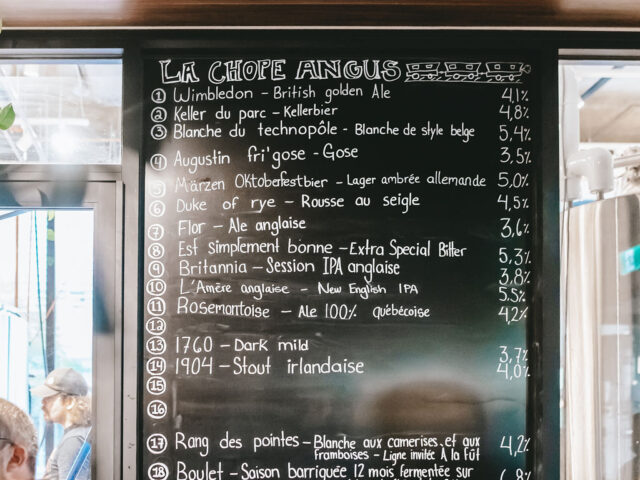 LA CHOPE ANGUS
1 Wimbledon - British golden Ale 4,1%
2 Keller du parc - Kellerbier 4,8%
3 Blanche du technopôle - Blanche de style belge 5,4%
4 Augustin fri'gose - Gose 3,5%
5 Märzen Oktoberfestbier - Lager ambrée allemande 5,0%
6 Duke of rye - Rousse au seigle 4,5%
7 Flor - Ale anglaise 3,6%
8 Est simplement bonne - Extra Special Bitter 5,3%
9 Britannia - Session IPA anglaise 3,8%
10 L'Amère anglaise - New English IPA 5,5%
11 Rosemontoise - Ale 100% québécoise 4,2%
12
13 1760 - Dark mild 3,7%
14 1904 - Stout irlandaise 4,0%
15
16
17 Rang des pointes - Blanche aux camerises et aux 4,2%
framboises - Ligne invitée À la fût
18 Boulet - Saison barriquée 12 mois fermentée sur